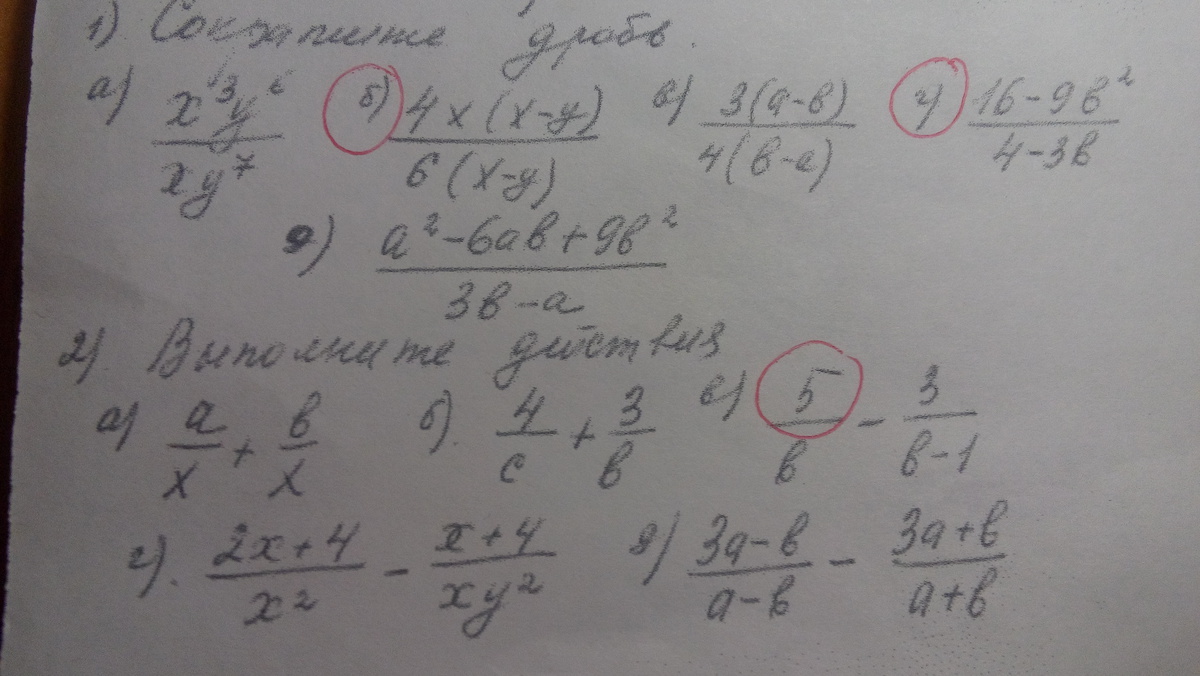 1) Сократите дробь.
а) x³y⁶/xy⁷ б) 4x(x-y)/6(x-y) в) 3(a-в)/4(в-a) г) 16-9в²/4-3в
д) a²-6aв+9в²/3в-a
2). Выполните действия
а) a/x + в/x б). 4/c + 3/в в) 5/в - 3/в-1
г). 2x+4/x² - x+4/xy² д) 3a-в/a-в - 3a+в/a+в